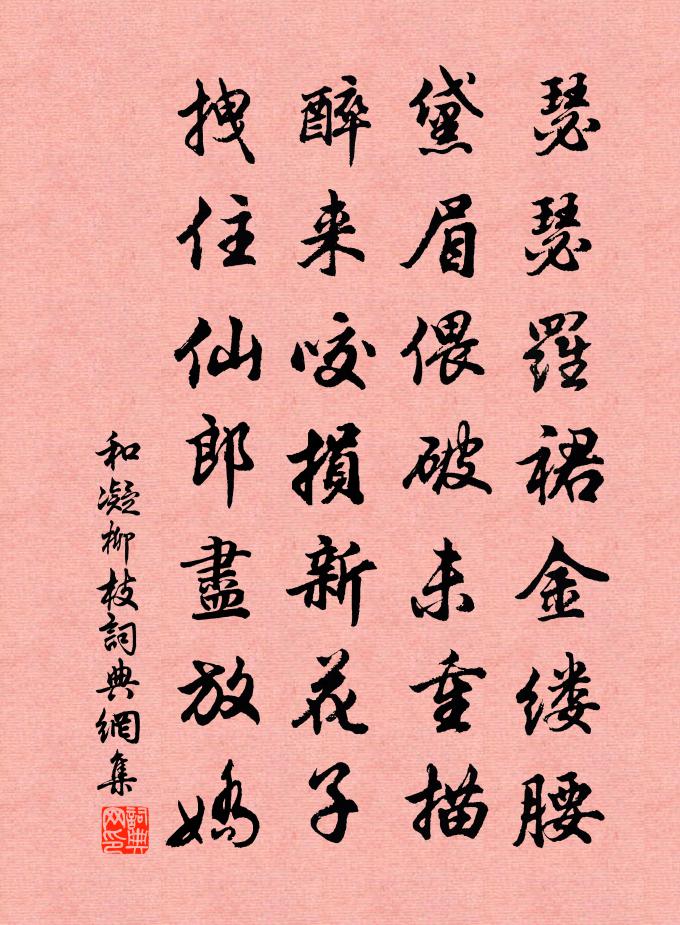 瑟瑟羅裙金缕腰
黛眉偎破未重描
醉来咬損新花子
拽住仙郎盡放嬌
和凝柳枝詞典網集
詞典网印